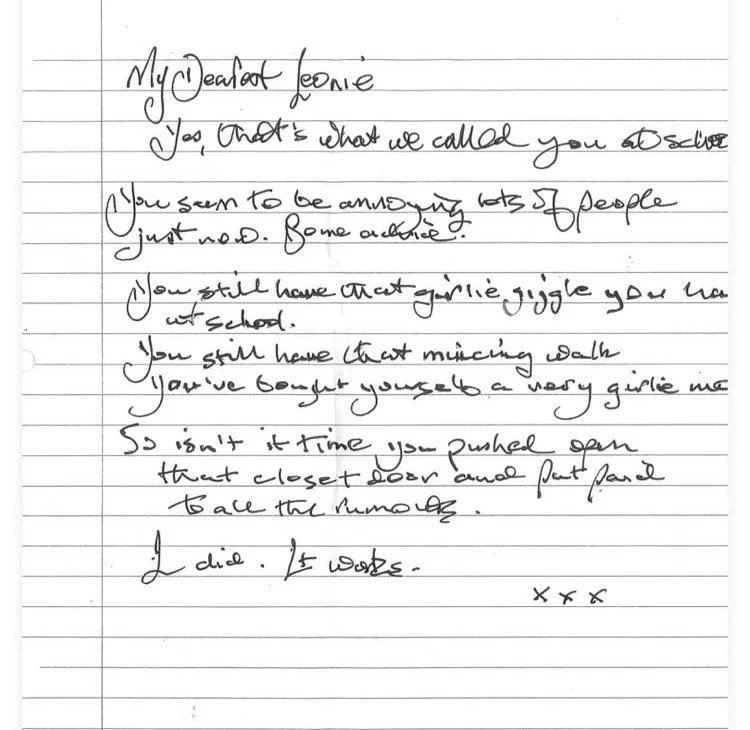 My Dearest Leonie
Yes, that's what we called you at
You seem to be annoying lots of people
just now. Some advice.
You still have that girlie giggle you ha
at school.
You still have that mincing walk
You've bought yourself a very girlie
So isn't it time you pushed open
that closet door and put paid
to all the rumours.
I did. It works.
x x x